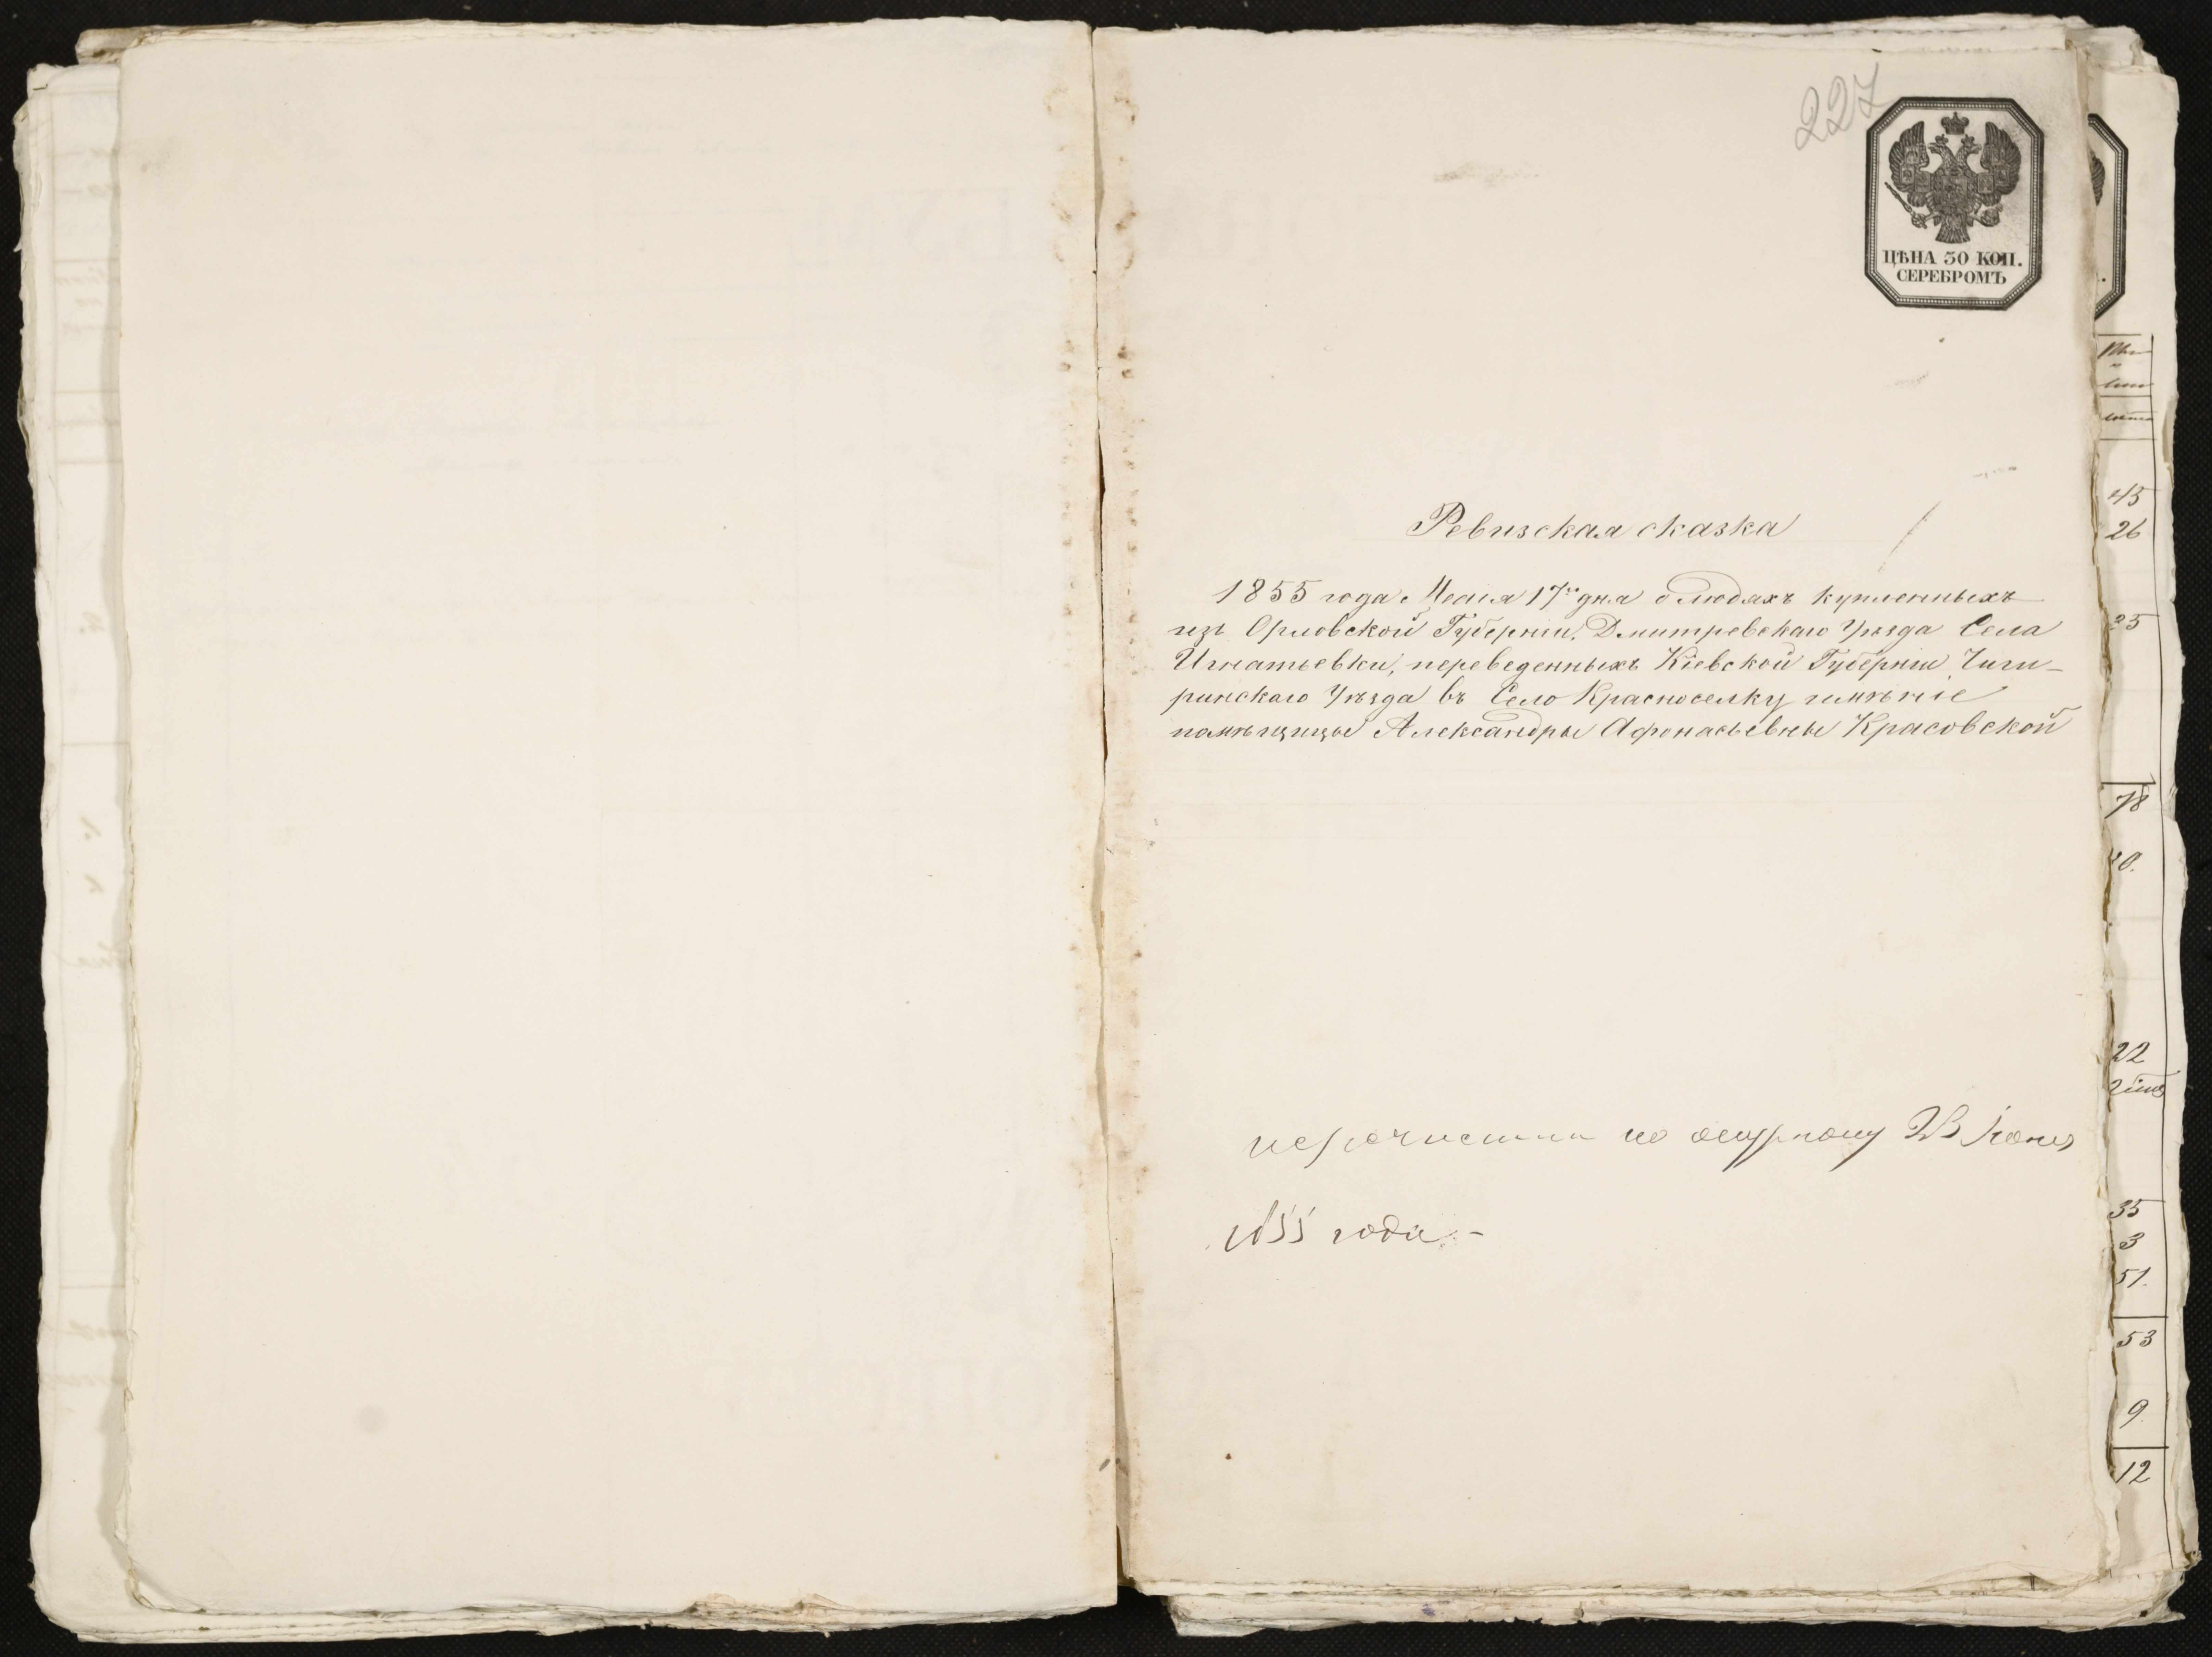 227
ЦѢНА 30 КОП.
СЕРЕБРОМЪ
Ревизская сказка
1855 года Мая 17го дня о людяхъ купленныхъ
изъ Орловской Губерніи, Дмитревскаго Уѣзда Села
Игнатьевки, переведенныхъ Кіевской Губерніи Чиги-
ринскаго Уѣзда въ Село Красноселку имѣніе
помѣщицы Александры Афонасьевны Красовской
по
1855 года -
45
26
25
78
22
35
3
51.
53
9
12